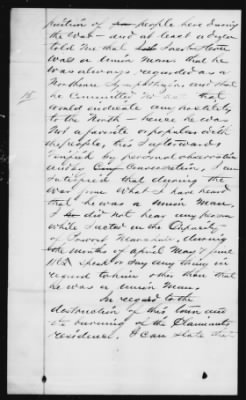 position of people here during
the War - and at least a dozen
told me that Jacob Stone
was a union man that he
was always regarded as a
Northern Sympathizer, and that
he Committed no act that
would indicate any hostility
to the North - hence he was
not a favorite or popular with
the people, this I afterwards
verified by personal observation
and by Conversation. I am
Satisfied that during the
war from what I have heard
that he was a union man.
I did not hear any person
while I acted in the Capacity
of Provost Marshal, during
the months of April May & June
1865 speak or say any thing in
regard to him other than that
he was a union man.
In regard to the
destruction of this town and
the burning of the Claimants
residence. I can state that